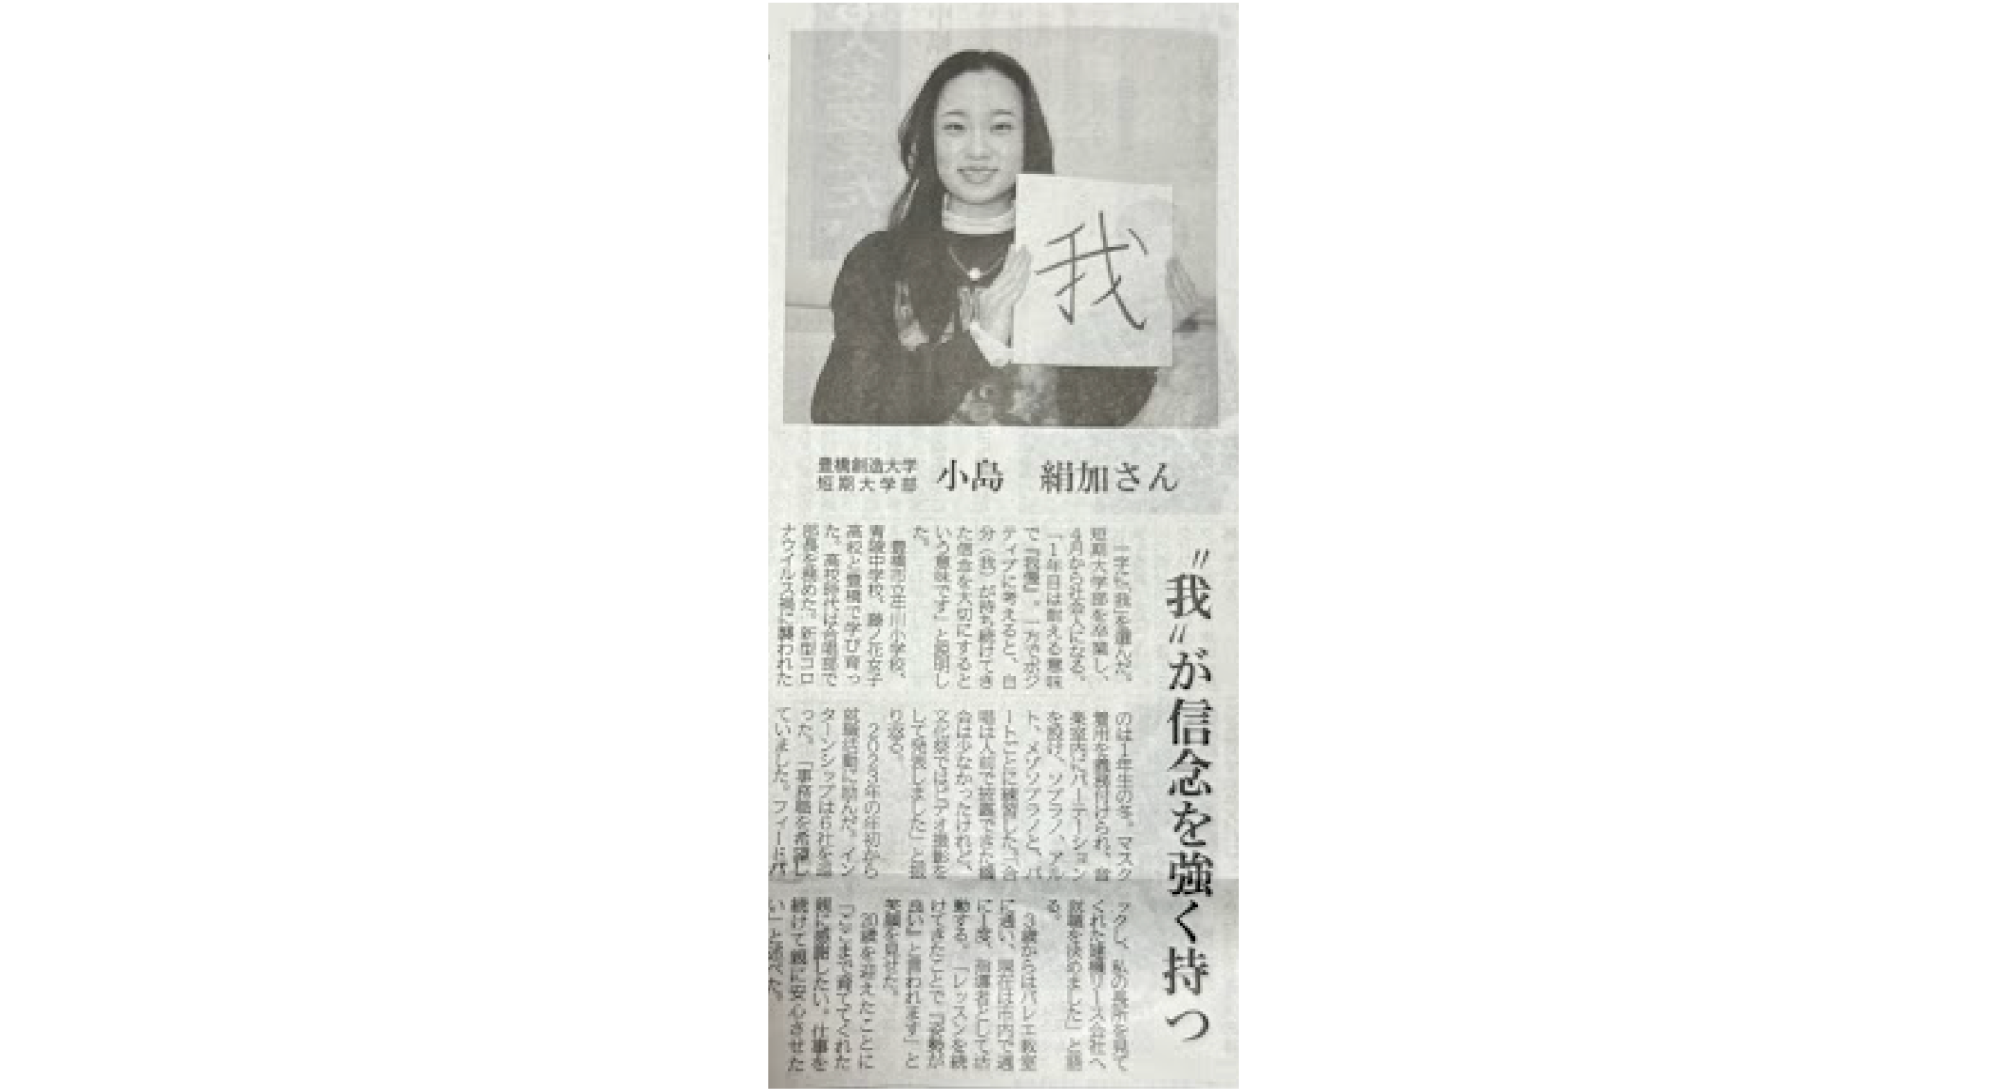 我
豊橋創造大学
短期大学部
小島 絹加さん
〝我〟が信念を強く持つ
一字に「我」を選んだ。
短期大学部を卒業し、
4月から社会人になる。
「1年目は耐える意味
で『我慢』。一方でポジ
ティブに考えると、自
分(我)が持ち続けてき
た信念を大切にすると
いう意味です」と説明し
た。
豊橋市立牛川小学校、
青陵中学校、藤ノ花女子
高校と豊橋で学び育っ
た。高校時代は合唱部で
部長を務めた。新型コロ
ナウイルス禍に襲われた
のは1年生の冬。マスク
着用を義務付けられ、音
楽室内にパーテーション
を設け、ソプラノ、アル
ト、メゾソプラノと、パ
ートごとに練習した。「合
唱は人前で披露できた機
会は少なかったけれど、
文化祭ではビデオ撮影を
して発表しました」と振
り返る。
2023年の年初から
就職活動に励んだ。イン
ターンシップは6社を巡
った。「事務職を希望し
ていました。フィードバ
ックし、私の長所を見て
くれた建機リース会社へ
就職を決めました」と語
る。
3歳からはバレエ教室
に通い、現在は市内で週
に1度、指導者として活
動する。「レッスンを続
けてきたことで『姿勢が
良い』と言われます」と
笑顔を見せた。
20歳を迎えたことに
「ここまで育ててくれた
親に感謝したい。仕事を
続けて親に安心させた
い」と述べた。